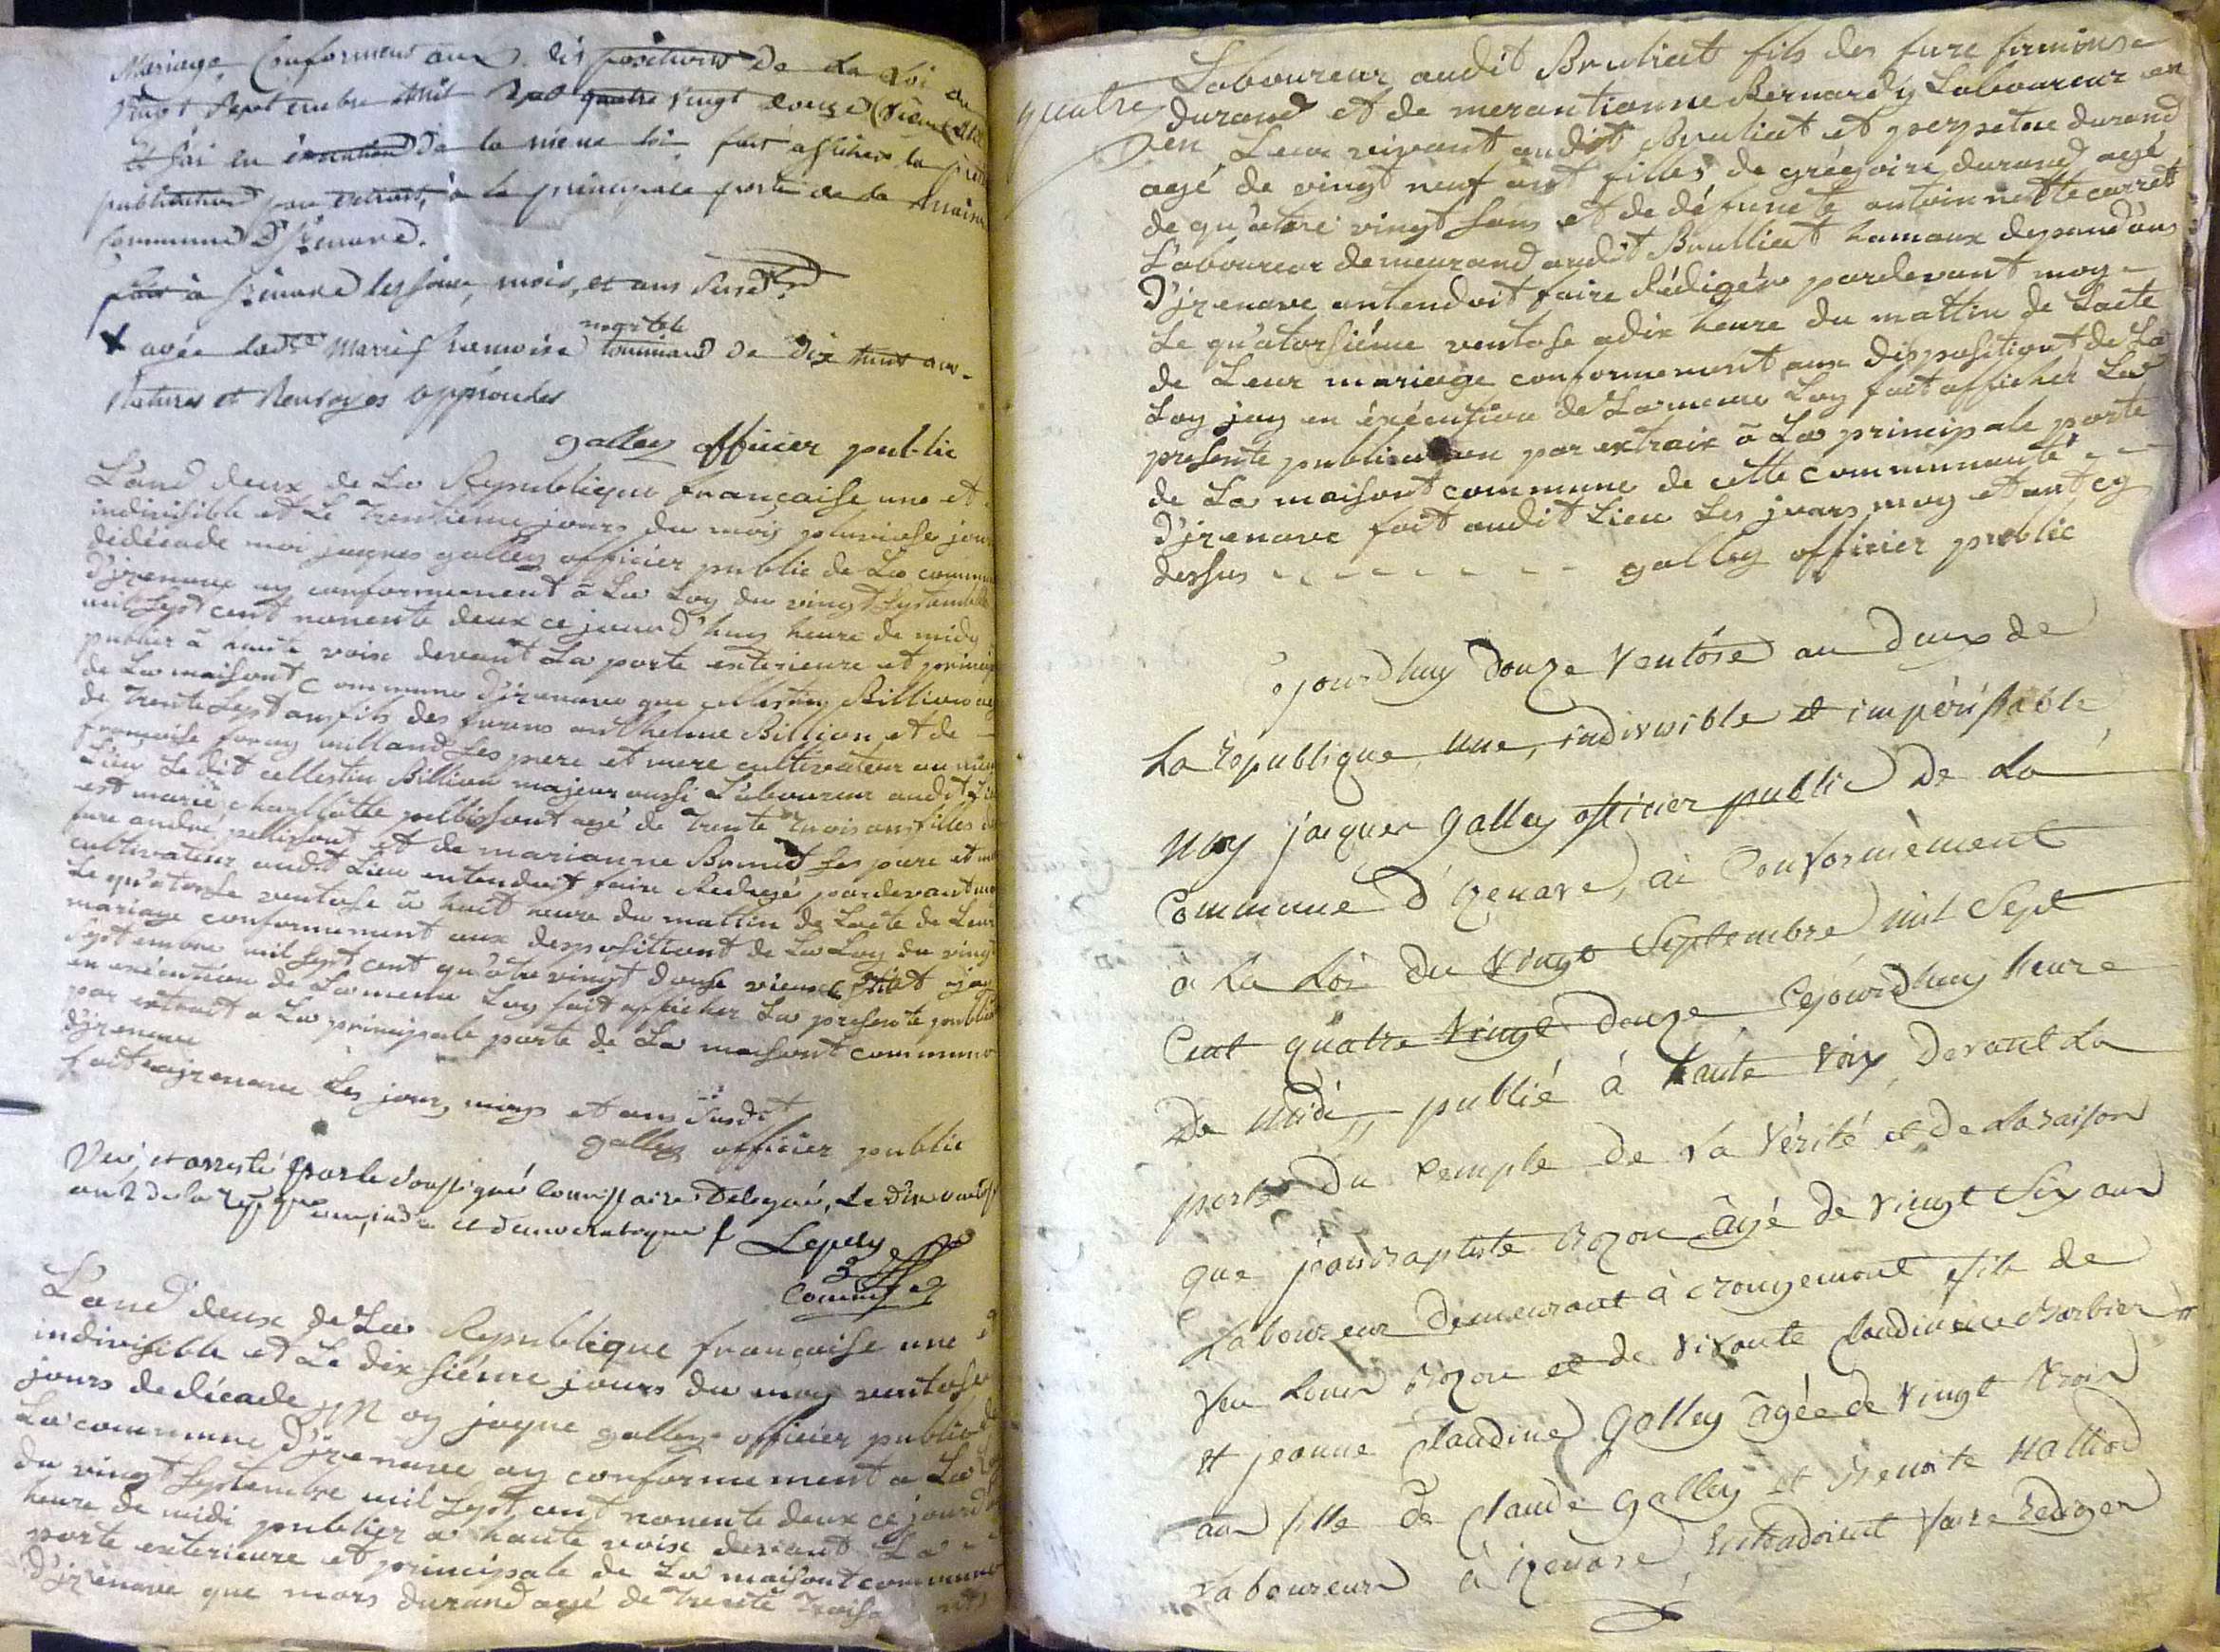 Mariage Conformement aux dispositions de la Loi du
vingt Septembre Mil Sept quatre vingt douze (vieux
Et j'ai en execution de la même loi fait afficher la
publication par extrait, à la principale porte de la maison
commune D'Izenave.
fait à Izenave les jour, mois, et ans susdit
+ avec Marie francoise martele de dix huit ans
Ratures et Renvoyes approuvées
galley officier public
L'and deux de La Republique française une et
indivisible et Le Trentieme jours du mois pluviose jour
dedécade moi jaques galley officier public de La commune
D'jzenave ay conformement à La Loy du vingt Septembre
mil Sept cent nonente deux ce jourd'huy heure de midy
publier à haute voix devant La porte exterieure et principale
de La maisont Commune D'jzenave que cellestin Billion agé
de Trente Sept ans fils des furens anthelme Billion et de
françoise favy milland Ses pere et mere cultivateur au
Lieu Le dit cellestin Billion majeur aussi Laboureur audit Lieu
est marie charllotte pellissont agé de Trente Trois ans filles
fure andré pellissont et de marianne Brunet Ses pere et mere
cultivateur audit Lieu entendoit faire Redigé pardevant moy
Le qu'atorse ventose à huit heure du mattin de Lacte de Leur
mariage conformement aux despositiont de La Loy du vingt
Septembre mil Sept cent qu'atre vingt douse vieux Stilt jay
en exécution de La meme Loy fait afficher La presente publication
par extrait a La principale porte de La maisont commune
d'jzenave
fait a jzenave Les jour, moys et ans Susdit
galley officier public
Vu et arresté par le soussigné commissaire Delegué, Le dix ventose
an 2 de la rep que une, indi. et democratique
Lepely
Commis
L'and deux de La Republique française une et
indivisible et Le dix siéme jours du moy ventose
jours dedécade Moy jaque galley officier public de
La commune D'jzenave ay conformement a La Loy
du vingt Septembre mil Sept cent nonente deux ce jourd
heure de midi publier a haute voix devant La
porte exterieure et principale de La maisont commune
D'jzenave que mars durand agé de Trente Trois ans
Laboureur audit Brulliat fils des fure firminse
quatre durand et de merantianne Bernardy Laboureur en
en Leur vivant audit Brulliat et perpetue durand
agé de vingt neuf ant filles de grégoire durand agé
de qu'atre vingt sans et de défuncte antoinnette carret
Laboureur demeurand audit Brulliat hamaux depand'ans
D'jzenave entendoit faire Rédigér pardevant moy
Le qu'atorsiéme ventose a dix heure du mattin de Lacte
de Leur mariage conformement aux dispositiont de La
Loy jay en éxécution de La meme Loy fait afficher La
presente publication par extrait à La principale porte
de La maisont commune de cette communauté
D'jzenave fait audit Lieu Les jours moy et ant cy
dessus - - - - - - - galley officier public
Cejourdhuy Douze Ventôse an Deux de
La republique, Une, indivisible et impérissable
Moy jacques Galley officier public De La
Commune D'izenave, ai Conformèment
à La Loi Du Vingt Septembre mil Sept
Cent quatre Vingt Douze Cejourdhuy heure
De Midi, publié à haute voix, Devant La
porte Du temple De La Vérité et De La raison
que jeanbaptiste Bozon âgé de Vingt Six ans
Laboureur Demeurant à rougemont fils de
feu Louis Bozon et de Vivante Claudine Barbier
et jeanne Claudine Galley âgée de Vingt trois
ans fille De Claude Galley et Benoite Malliod
Laboureurs à izenave, Entendoient faire rediger